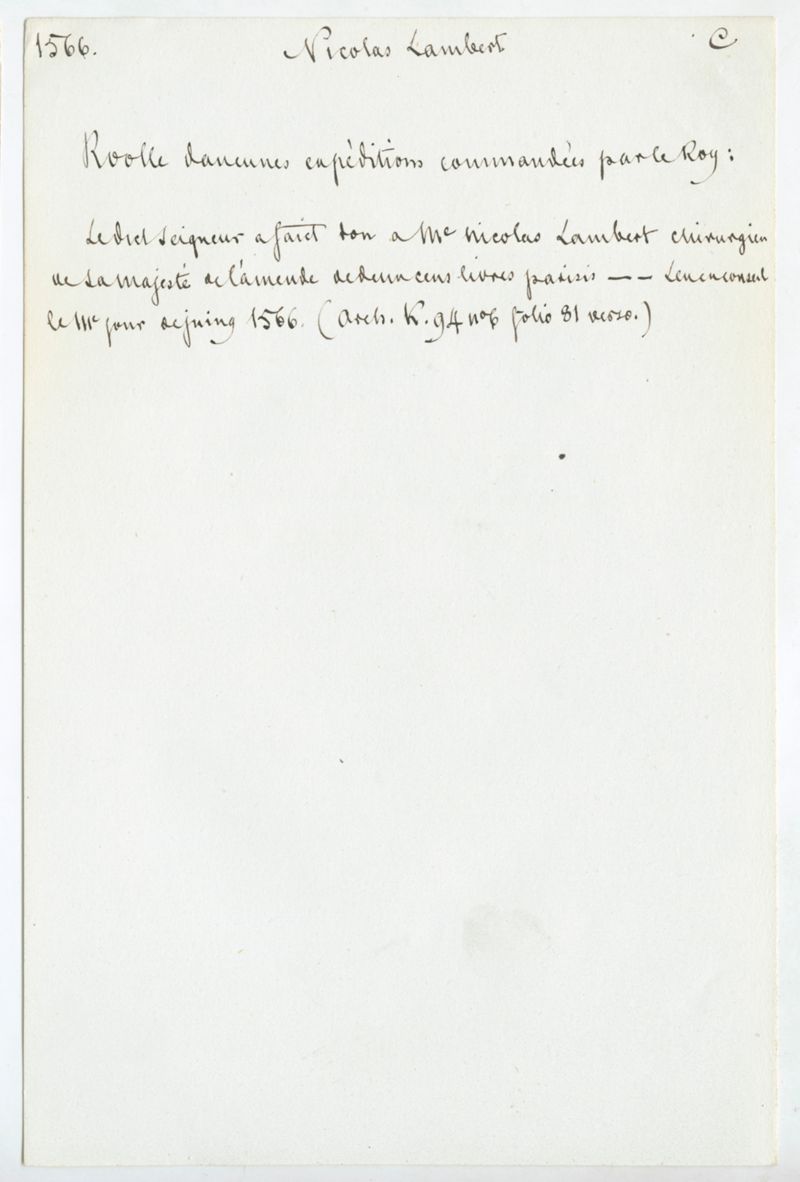 1566. Nicolas Lambert C
Roolle daucunes expéditions commandées par le Roy :
Ledict Seigneur a faict don a Me Nicolas Lambert chirurgien
de Sa Majesté de l'amende de deux cens livres parisis — — Leu en conseil
le Me jour de juing 1566. (Arch. K. 94 no 6 folio 81 verso.)